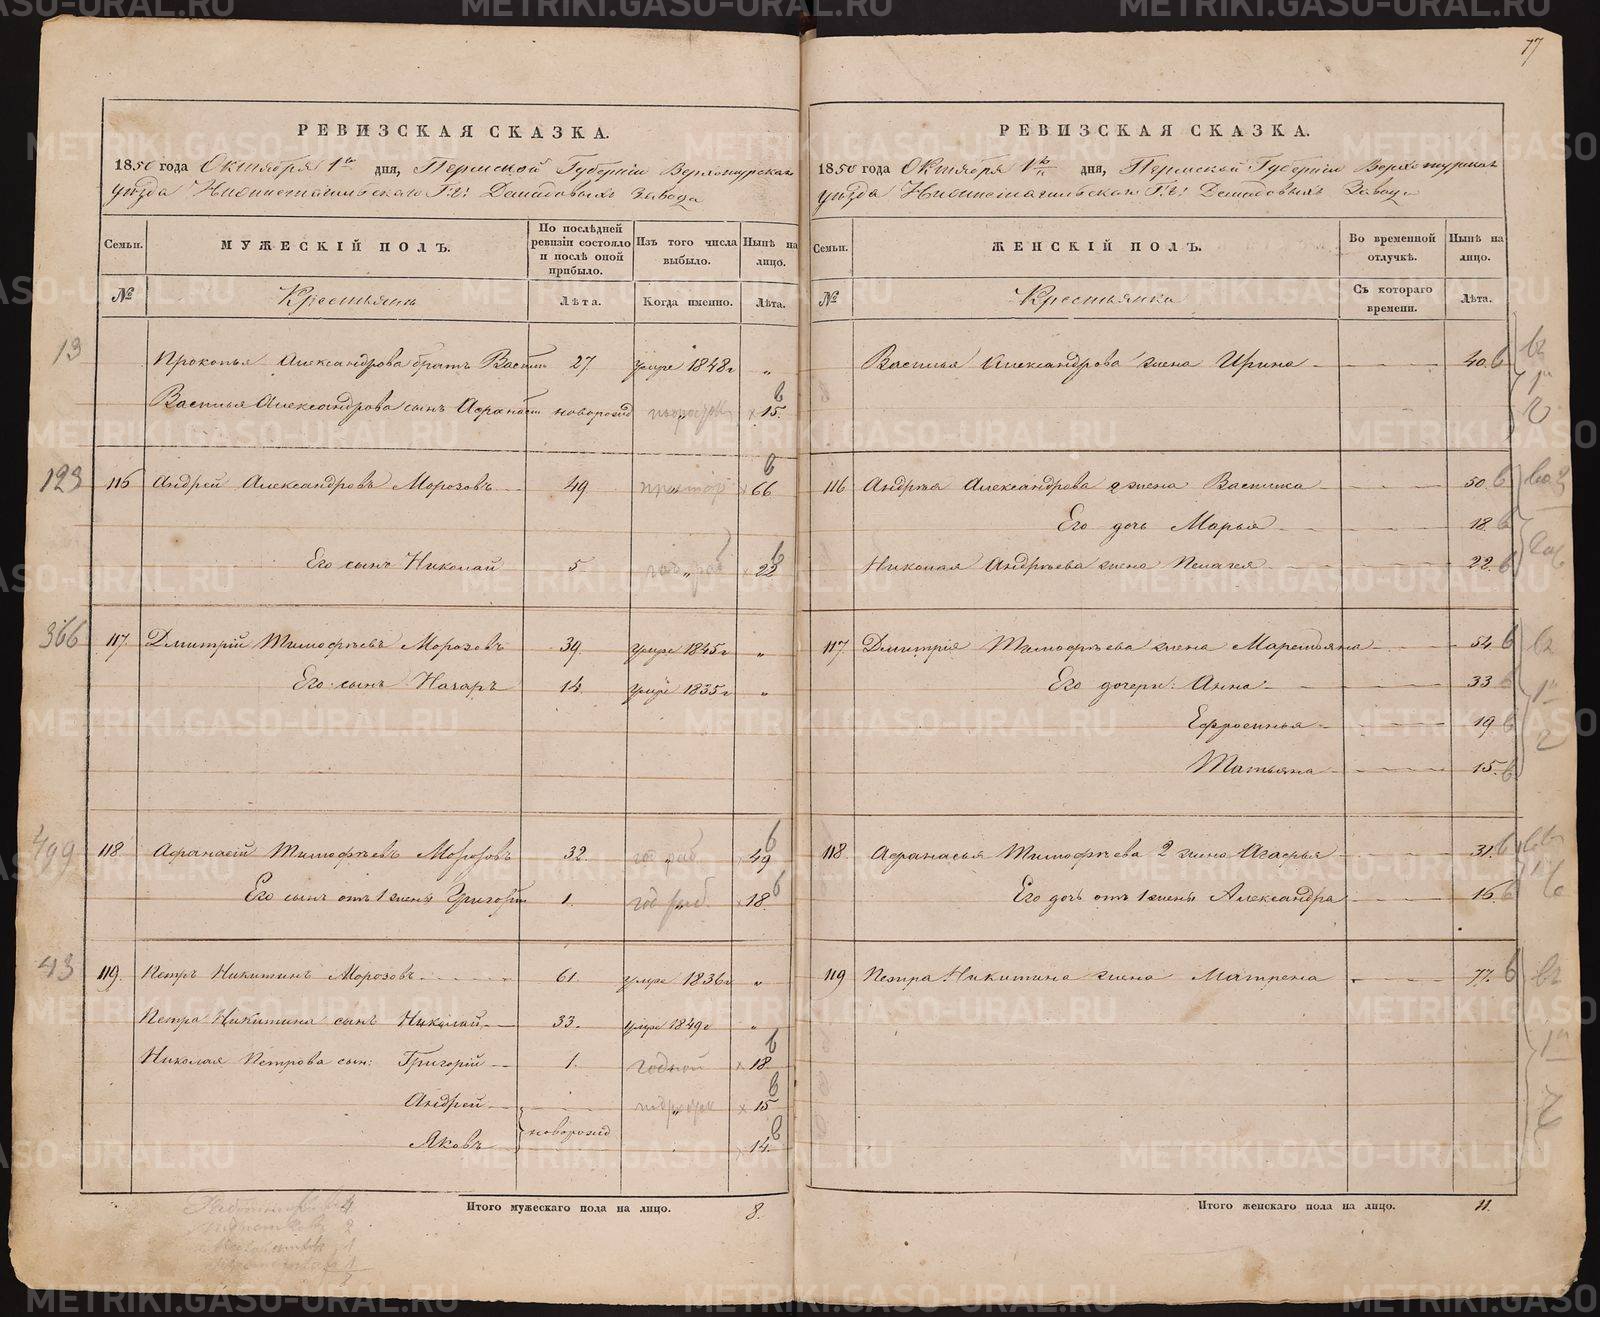 77
РЕВИЗСКАЯ СКАЗКА.
1850 года Октября 1го дня, Пермской Губерніи Верхотурскаго
уѣзда Нижнетагильскаго Г.г. Демидовыхъ Завода
Семьи. МУЖЕСКІЙ ПОЛЪ. По послѣдней ревизіи состояло и послѣ оной прибыло. Изъ того числа выбыло. Нынѣ на лицо.
№ Крестьянъ Лѣта. Когда именно. Лѣта.
13 Прокопья Александрова братъ Василій 27 умре 1848г "
Василья Александрова сынъ Афанасій новорожд 15.
123 116 Андрей Александровъ Морозовъ 49 66
Его сынъ Николай 5. 22
366 117. Дмитрій Тимофѣевъ Морозовъ 39. умре 1845г "
Его сынъ Назаръ 14. умре 1835г "
499 118. Афанасій Тимофѣевъ Морозовъ 32. год раб. 49
Его сынъ отъ 1 жены Григорій 1. год раб. 18.
43 119. Петръ Никитинъ Морозовъ 61. умре 1836г "
Петра Никитина сынъ Николай 33. умре 1849г "
Николая Петрова сын: Григорій 1. годной 18.
Андрей подросток 15
Яковъ новорожд 14.
Итого мужескаго пола на лицо. 8.
РЕВИЗСКАЯ СКАЗКА.
1850 года Октября 1го дня, Пермской Губерніи Верхотурскаго
уѣзда Нижнетагильскаго Г.г. Демидовыхъ Завода
Семьи. ЖЕНСКІЙ ПОЛЪ. Во временной отлучкѣ. Нынѣ на лицо.
№ Крестьянка Съ котораго времени. Лѣта.
Василья Александрова жена Ирина 40.
116 Андрѣя Александрова 2 жена Василиса 50.
Его дочь Марья 18.
Николая Андрѣева жена Пелагея 22.
117. Дмитрія Тимофѣева жена Маремьяна 54.
Его дочери: Анна 33
Ефросинья 19
Татьяна 15.
118. Афанасья Тимофѣева 2 жена Агафья 31.
Его дочь отъ 1 жены Александра 16.
119 Петра Никитина жена Матрена 77.
Итого женскаго пола на лицо. 11.
METRIKI.GASO-URAL.RU